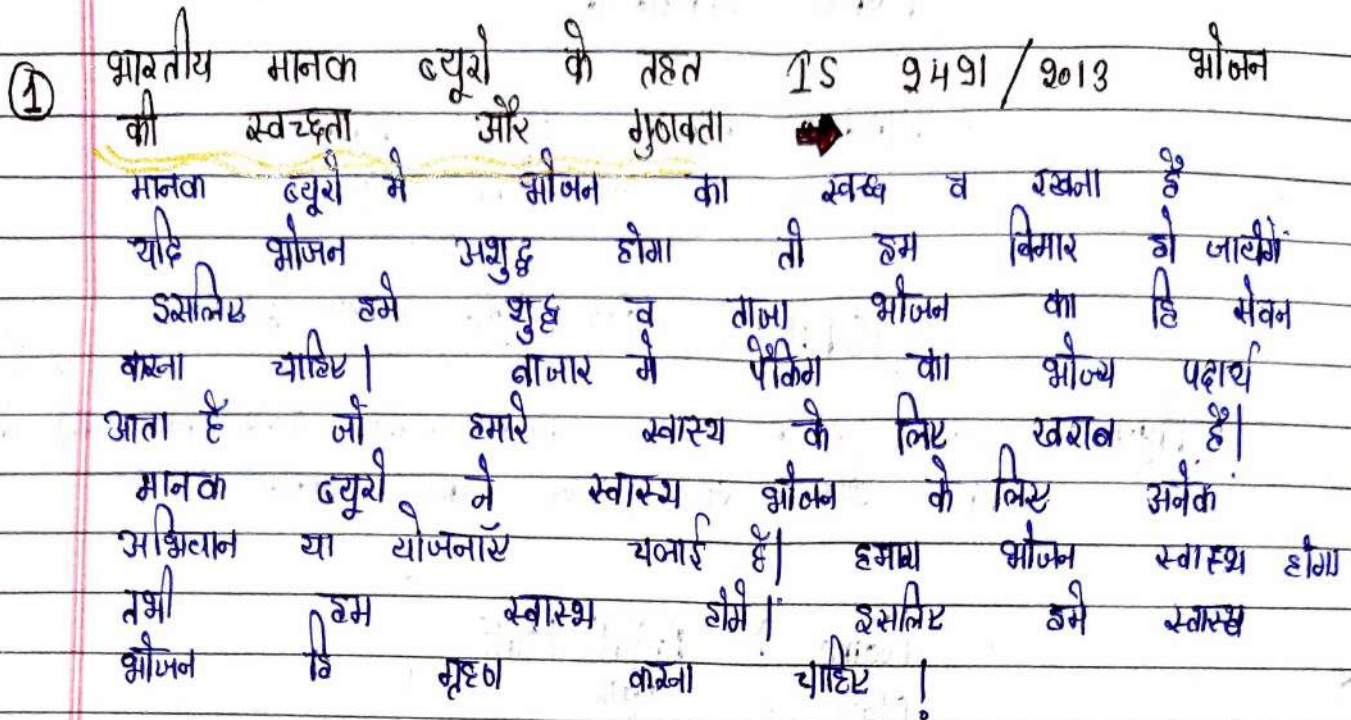 ① भारतीय मानक ब्यूरो के तहत IS 2491/2013 भोजन
की स्वच्छता और गुणवता ➡
मानक ब्यूरो मे भोजन का स्वच्छ व रखना है
यदि भोजन अशुद्ध होगा तो हम बिमार हो जायेगें
इसलिए हमे शुद्ध व ताजा भोजन का हि सेवन
करना चाहिए। बाजार मे पैकिंग का भोज्य पदार्थ
आता है जो हमारे स्वास्थ के लिए खराब है।
मानक ब्यूरो ने स्वास्थ्य भोजन के लिए अनेक
अभियान या योजनाएँ चलाई है। हमारा भोजन स्वास्थ होगा
तभी हम स्वास्थ होगे। इसलिए हमे स्वास्थ
भोजन हि गृहण करना चाहिए।